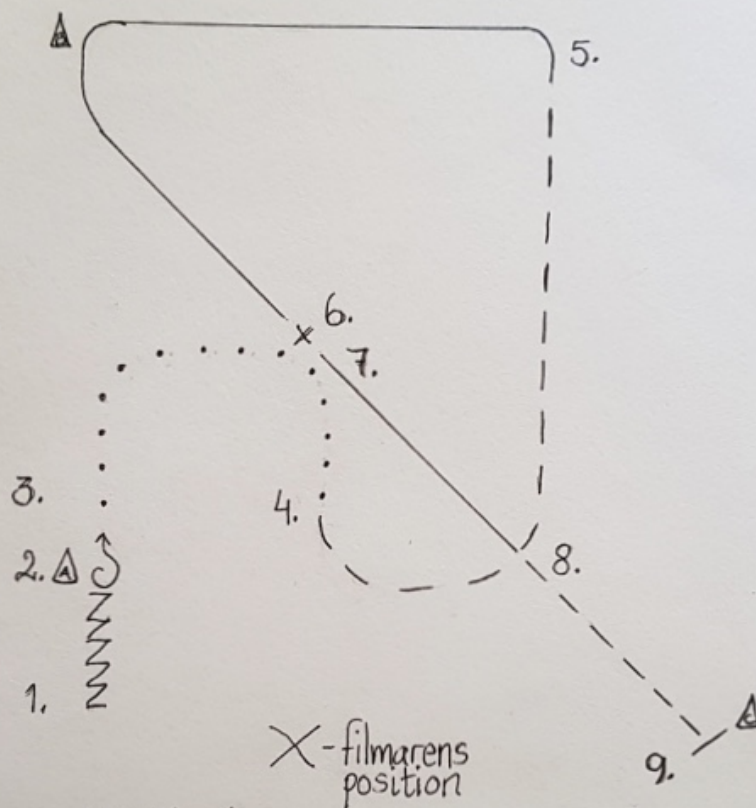 B
5.
6.
x
7.
3.
4.
2. A
8.
1.
X-filmarens
position
9.